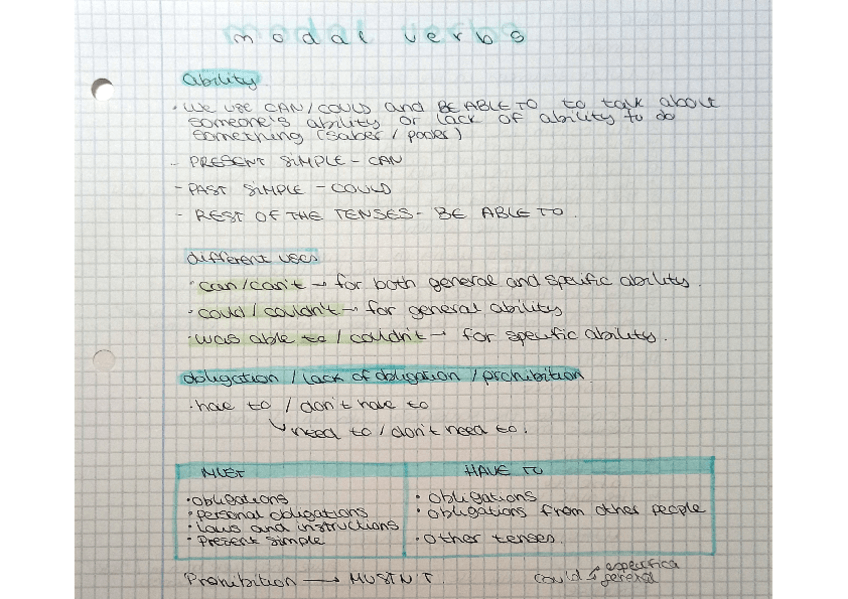 modal verbs
ability
· WE USE CAN/COULD and BE ABLE TO to talk about
someone's ability or lack of ability to do
something (saber / poder)
- PRESENT SIMPLE - CAN
- PAST SIMPLE - COULD
- REST OF THE TENSES - BE ABLE TO.
different uses
· can/can't → for both general and specific ability.
· could/couldn't → for general ability
· was able to / couldn't → for specific ability.
obligation / lack of obligation / prohibition
· have to / don't have to
↳ need to / don't need to.
MUST HAVE TO
· obligations · obligations
· personal obligations · obligations from other people
· laws and instructions
· Present simple · Other tenses.
Prohibition → MUSTN'T. could especifica
general